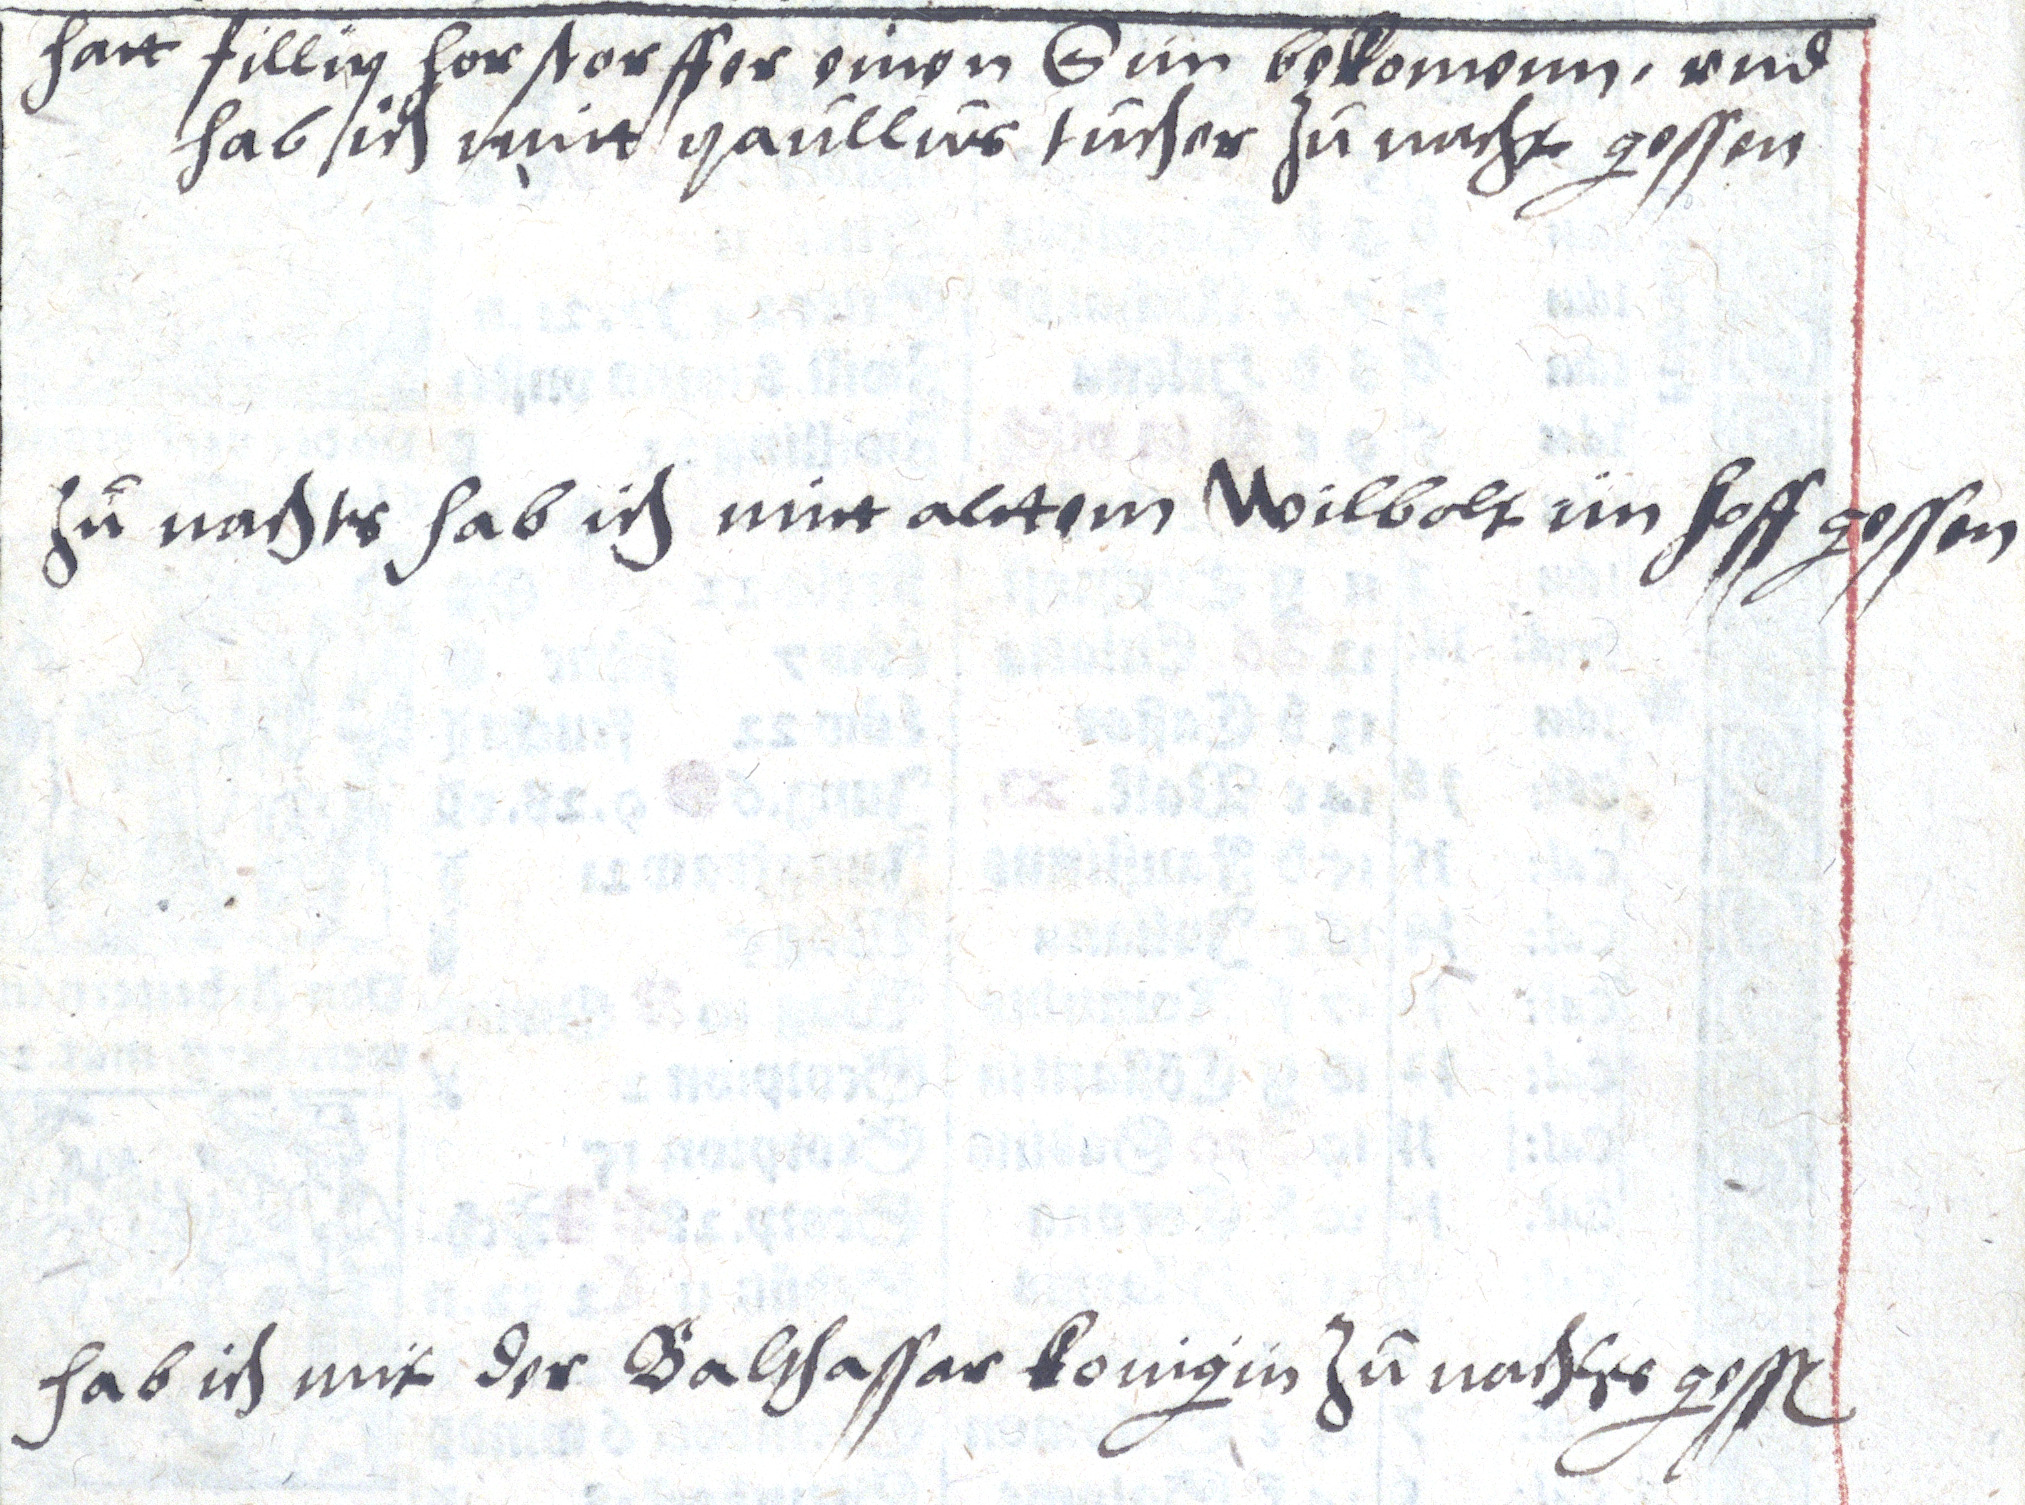 hatt fillip horstorffer einen Sun bekomenn, vnd
hab ich mitt paullus tucher zu nacht gessen
zu nachts hab ich mitt alttem Wilbolt im hoff gessen
hab ich mit der Balthassar konigin zu nachts gessen